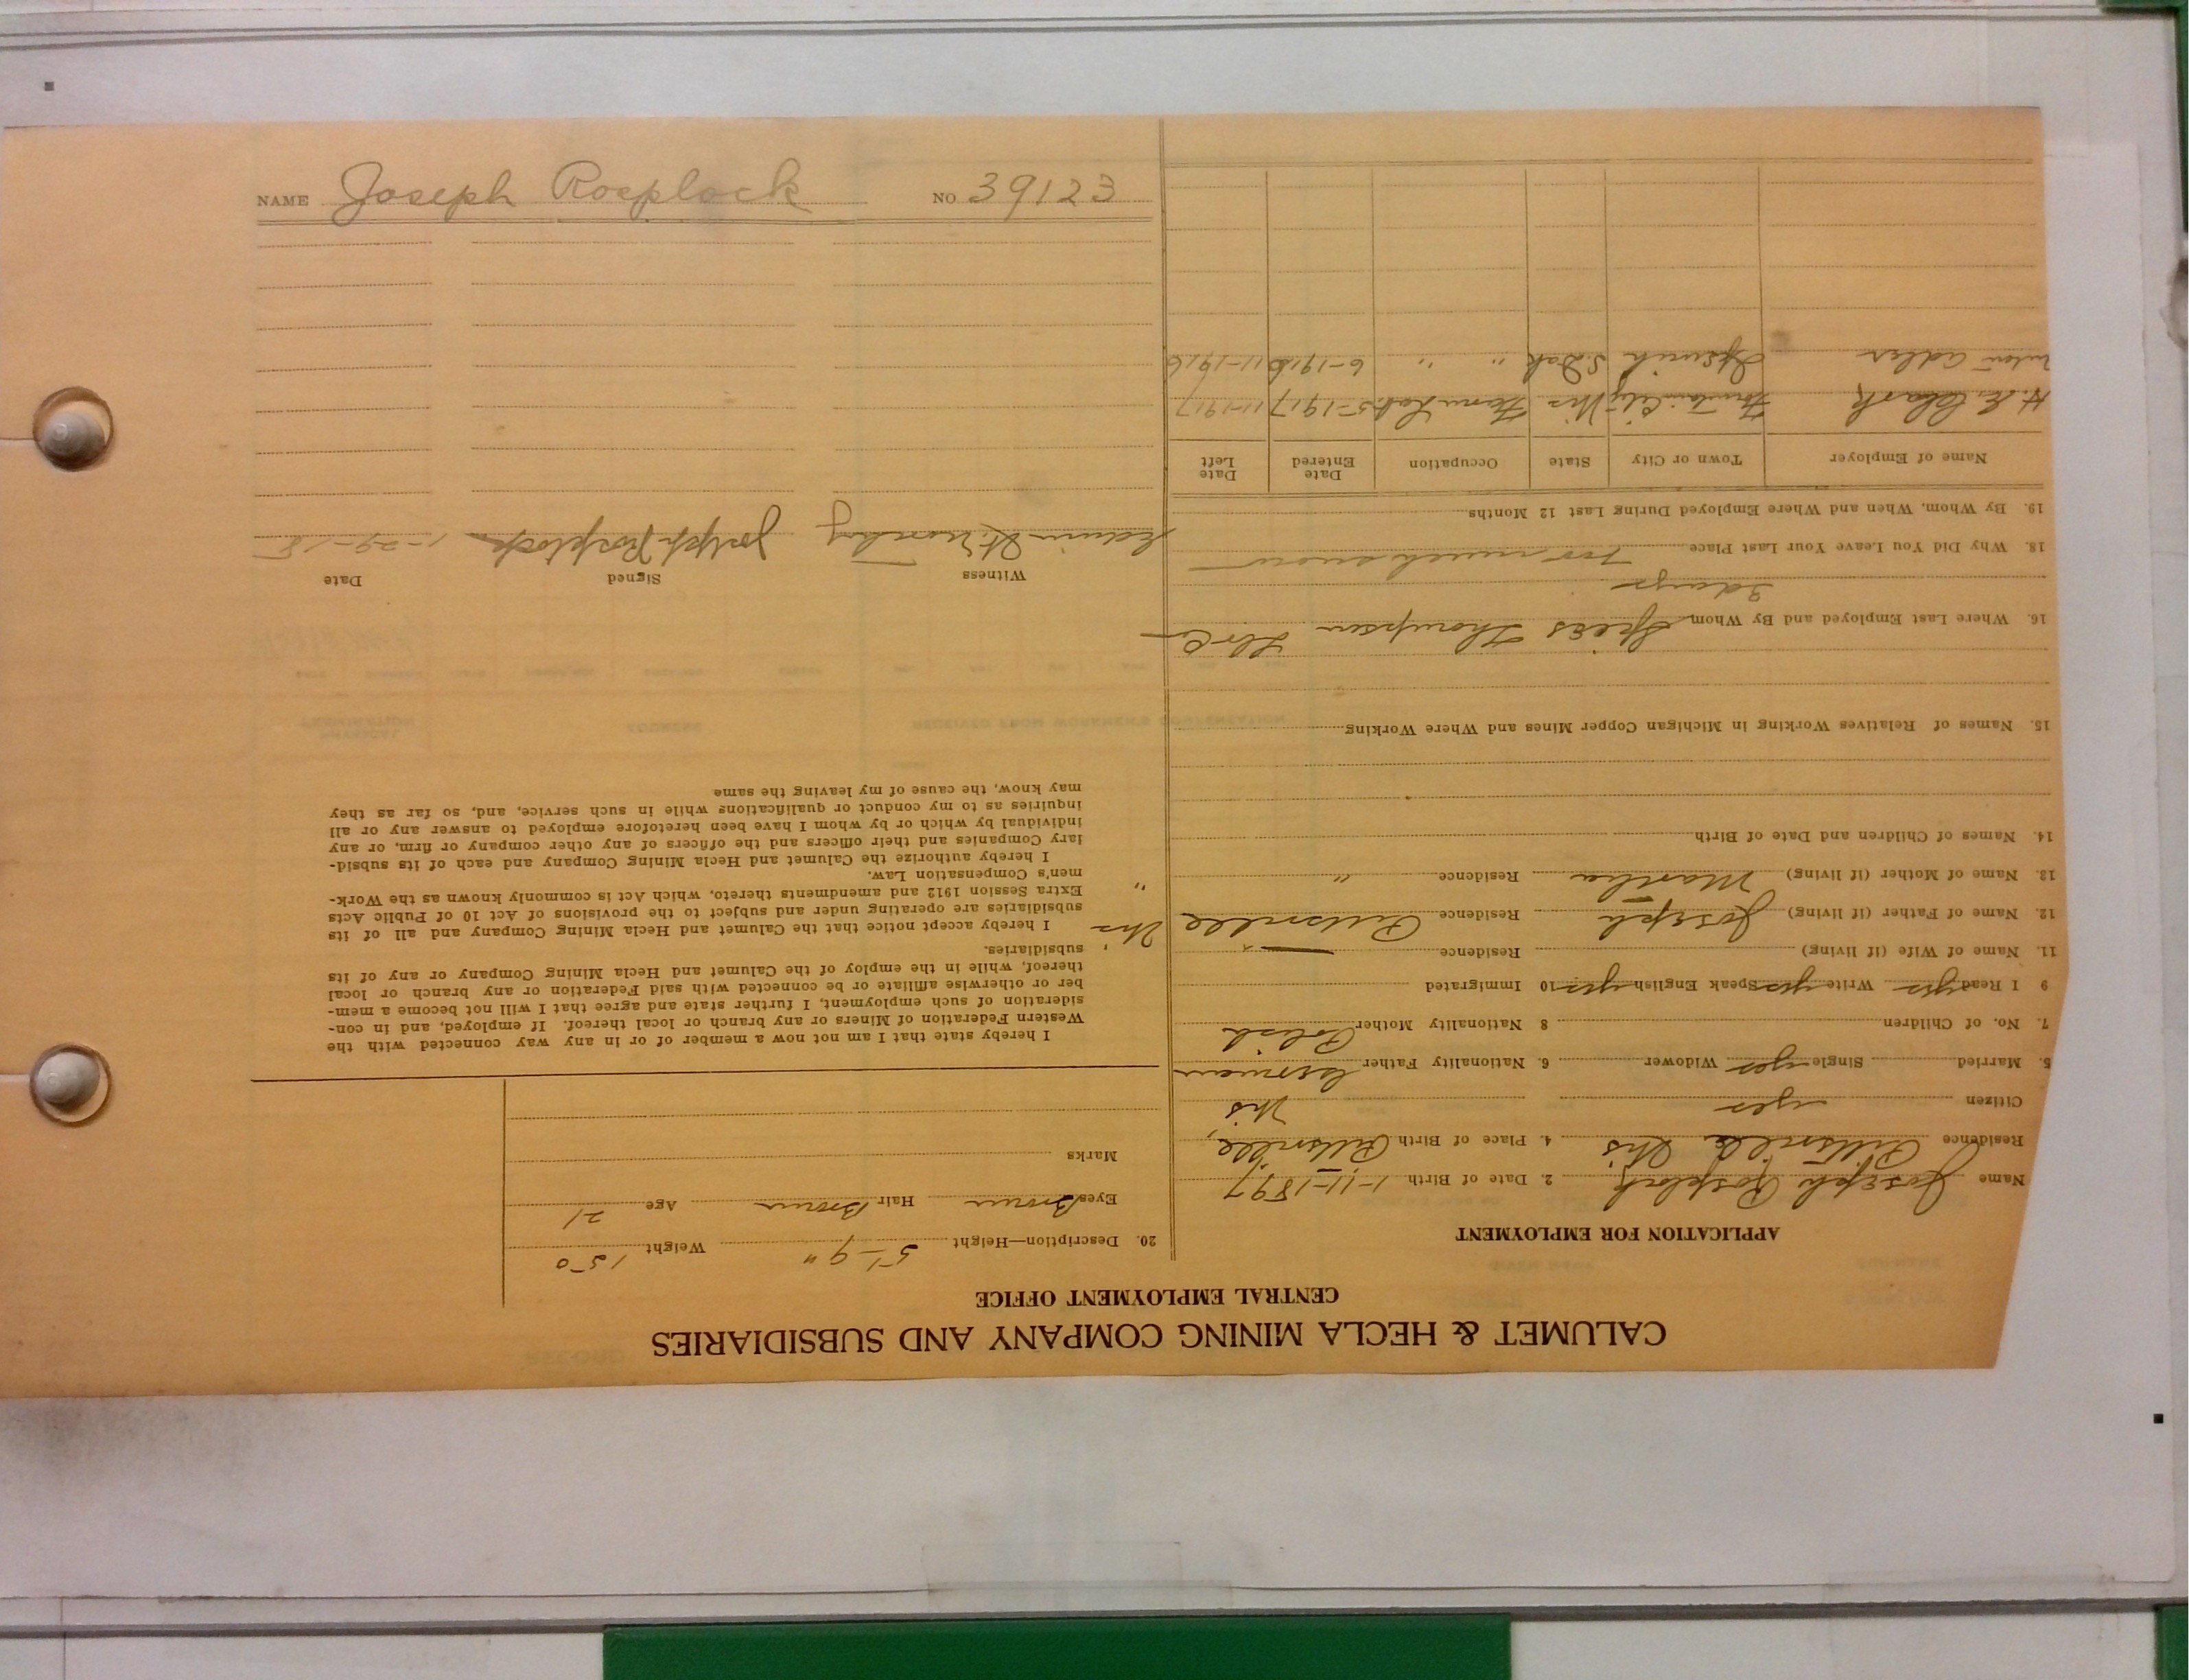 NAME Joseph Rosplock NO 39123
CALUMET & HECLA MINING COMPANY AND SUBSIDIARIES
CENTRAL EMPLOYMENT OFFICE
APPLICATION FOR EMPLOYMENT
Name Joseph Rosplock 2. Date of Birth 1-11-1897
Residence Pittsville Wis 4. Place of Birth Pittsville,
Citizen yes Wis
5. Married Single yes Widower 6. Nationality Father German
7. No. of Children 8 Nationality Mother Polish
9 I Read yes Write yes Speak English yes 10 Immigrated
11. Name of Wife (if living) Residence
12. Name of Father (if living) Joseph Residence Pittsville Wis
13. Name of Mother (if living) Martha Residence " "
14. Names of Children and Date of Birth
15. Names of Relatives Working in Michigan Copper Mines and Where Working
16. Where Last Employed and By Whom Spies Thompson Lbr Co
3 days
18. Why Did You Leave Your Last Place Too much snow
19. By Whom, When and Where Employed During Last 12 Months
Name of Employer Town or City State Occupation Date Entered Date Left
H. E. Clark Fountain City Wis Farm Lab. 5-1917 11-1917
Adler Ipswich S. Dak " " 6-1916 11-1916
20. Description—Height 5'-9" Weight 150
Eyes Brown Hair Brown Age 21
Marks
I hereby state that I am not now a member of or in any way connected with the
Western Federation of Miners or any branch or local thereof. If employed, and in con-
sideration of such employment, I further state and agree that I will not become a mem-
ber or otherwise affiliate or be connected with said Federation or any branch or local
thereof, while in the employ of the Calumet and Hecla Mining Company or any of its
subsidiaries.
I hereby accept notice that the Calumet and Hecla Mining Company and all of its
subsidiaries are operating under and subject to the provisions of Act 10 of Public Acts
Extra Session 1912 and amendments thereto, which Act is commonly known as the Work-
men's Compensation Law.
I hereby authorize the Calumet and Hecla Mining Company and each of its subsid-
iary Companies and their officers and the officers of any other company or firm, or any
individual by which or by whom I have been heretofore employed to answer any or all
inquiries as to my conduct or qualifications while in such service, and, so far as they
may know, the cause of my leaving the same
Witness Signed Date
Edwin H. Joseph Rosplock 1-29-18